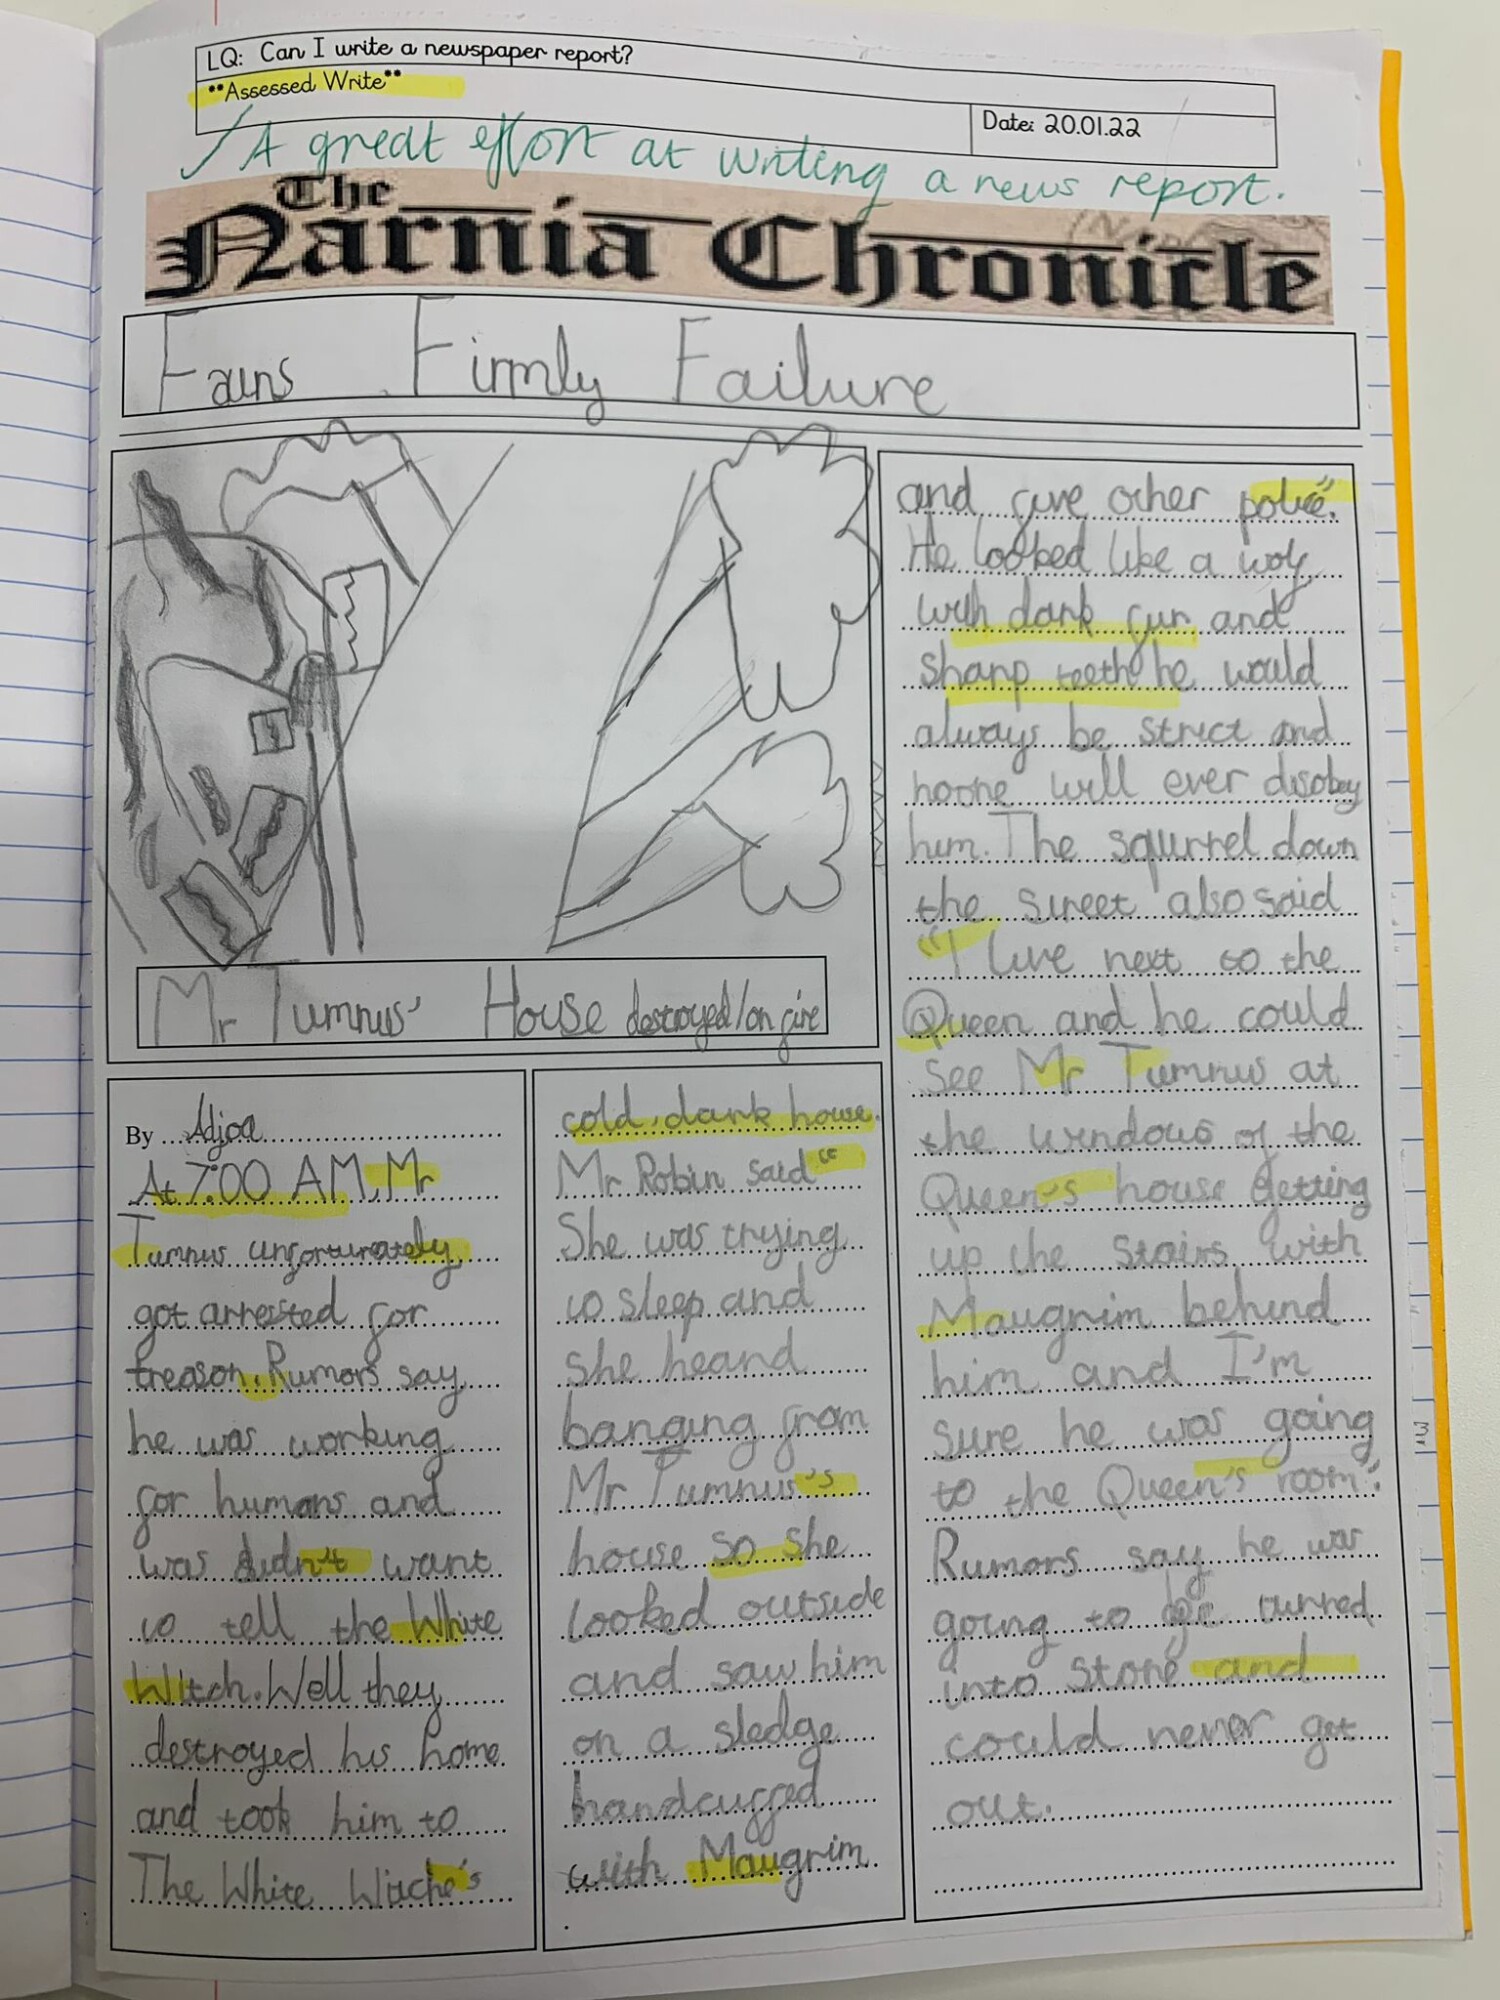 LQ: Can I write a newspaper report?
**Assessed Write**
Date: 20.01.22
A great effort at writing a news report.
The
Narnia Chronicle
Fauns Firmly Failure
Mr Tumnus' House destroyed/on fire
By Adjoa
At 7:00 AM, Mr
Tumnus unfortunately
got arrested for
treason. Rumors say
he was working
for humans and
was didn't want
to tell the White
Witch. Well they
destroyed his home
and took him to
The White Witche's
cold, dark house.
Mr Robin said "
She was trying
to sleep and
she heard
banging from
Mr Tumnus's
house so she
looked outside
and saw him
on a sledge
handcuffed
with Maugrim
.
and five other police".
He looked like a wolf
with dark fur and
sharp teeth he would
always be strict and
noone will ever disobey
him. The squirrel down
the street also said
"I live next to the
Queen and he could
see Mr Tumnus at
the windows of the
Queen's house getting
up the stairs with
Maugrim behind
him and I'm
sure he was going
to the Queen's room".
Rumors say he was
going to be turned
into stone and
could never get
out.